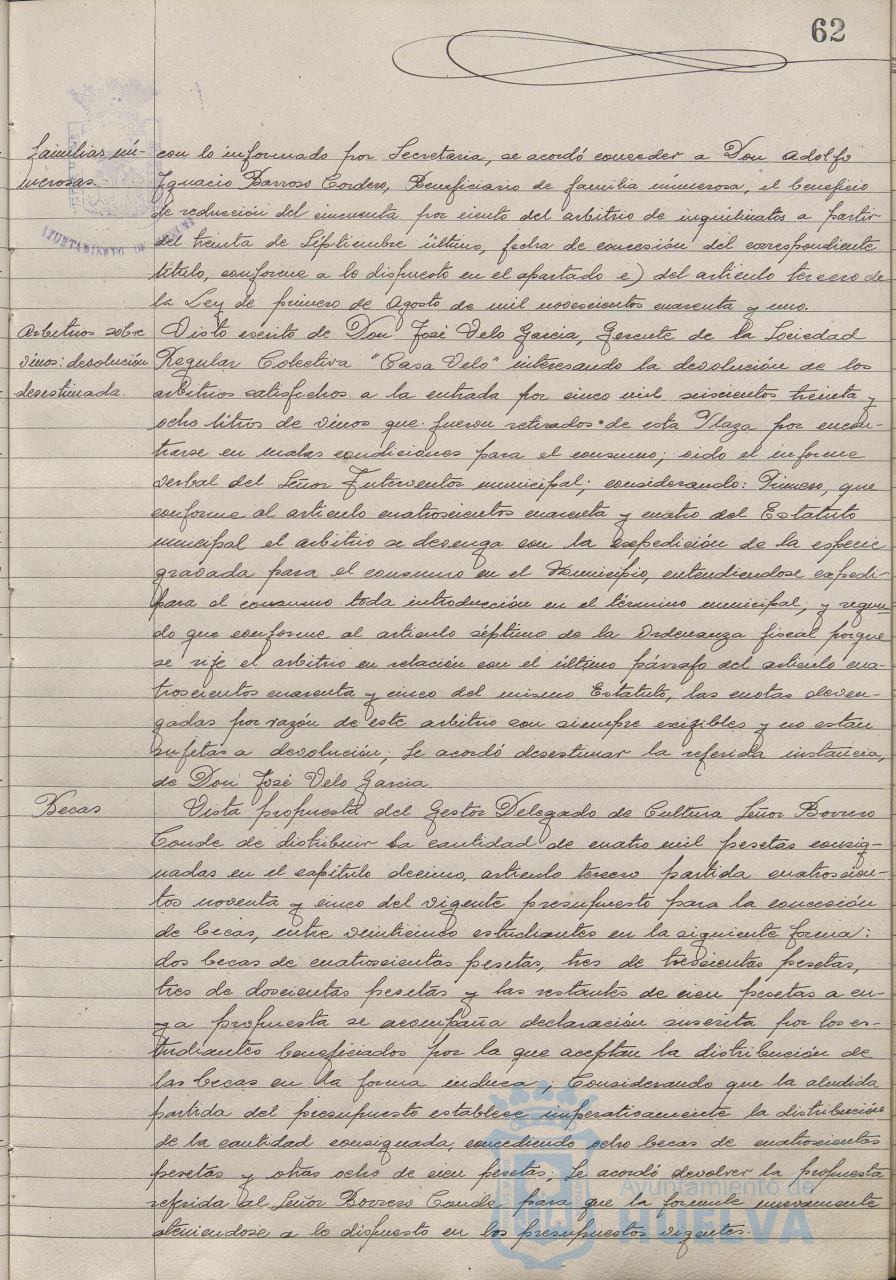 62
familias nu-
merosas.
con lo informado por Secretaria, se acordó conceder a Don Adolfo
Ignacio Barroso Cordero, Beneficiario de familia numerosa, el beneficio
de reducción del cincuenta por ciento del arbitrio de inquilinatos a partir
del treinta de Septiembre último, fecha de concesión del correspondiente
título, conforme a lo dispuesto en el apartado e) del articulo tercero de
la Ley de primero de Agosto de mil novescientos cuarenta y uno.
AYUNTAMIENTO DE
Arbitrios sobre
vinos: devolución
desestimada.
Visto escrito de Don José Velo Garcia, Gerente de la Sociedad
Regular Colectiva "Casa Velo" interesando la devolución de los
arbitrios satisfechos a la entrada por cinco mil seiscientos treinta y
ocho litros de vinos que fueron retirados de esta Plaza por encon-
trarse en malas condiciones para el consumo; oido el informe
verbal del Señor Interventor municipal; considerando: Primero, que
conforme al articulo cuatroscientos cuarenta y cuatro del Estatuto
municipal el arbitrio se devenga con la expedición de la especie
gravada para el consumo en el Municipio, entendiendose expedi-
para el consumo toda introducción en el término municipal; y segun-
do que conforme al articulo séptimo de la Ordenanza fiscal porque
se rije el arbitrio en relación con el último párrafo del articulo cua-
troscientos cuarenta y cinco del mismo Estatuto, las cuotas deven-
gadas por razón de este arbitrio son siempre exigibles y no estan
sujetas a devolución; Se acordó desestimar la referida instancia,
de Don José Velo Garcia.
Becas
Vista propuesta del Gestor Delegado de Cultura Señor Borrero
Conde de distribuir la cantidad de cuatro mil pesetas consig-
nadas en el capitulo decimo, articulo tercero partida cuatroscien-
tos noventa y cinco del vigente presupuesto para la concesión
de becas, entre veinticinco estudiantes en la siguiente forma:
dos becas de cuatroscientas pesetas, tres de trescientas pesetas,
tres de doscientas pesetas y las restantes de cien pesetas a cu-
ya propuesta se acompaña declaración suscrita por los es-
tudiantes beneficiados por la que aceptan la distribución de
las becas en la forma indica; Considerando que la aludida
partida del presupuesto establece imperativamente la distribución
de la cantidad consignada, concediendo ocho becas de cuatroscientas
pesetas y otras ocho de cien pesetas; Se acordó devolver la propuesta
referida al Señor Borrero Conde, para que la formule nuevamente
ateniendose a lo dispuesto en los presupuestos vigentes.
Ayuntamiento de
HUELVA